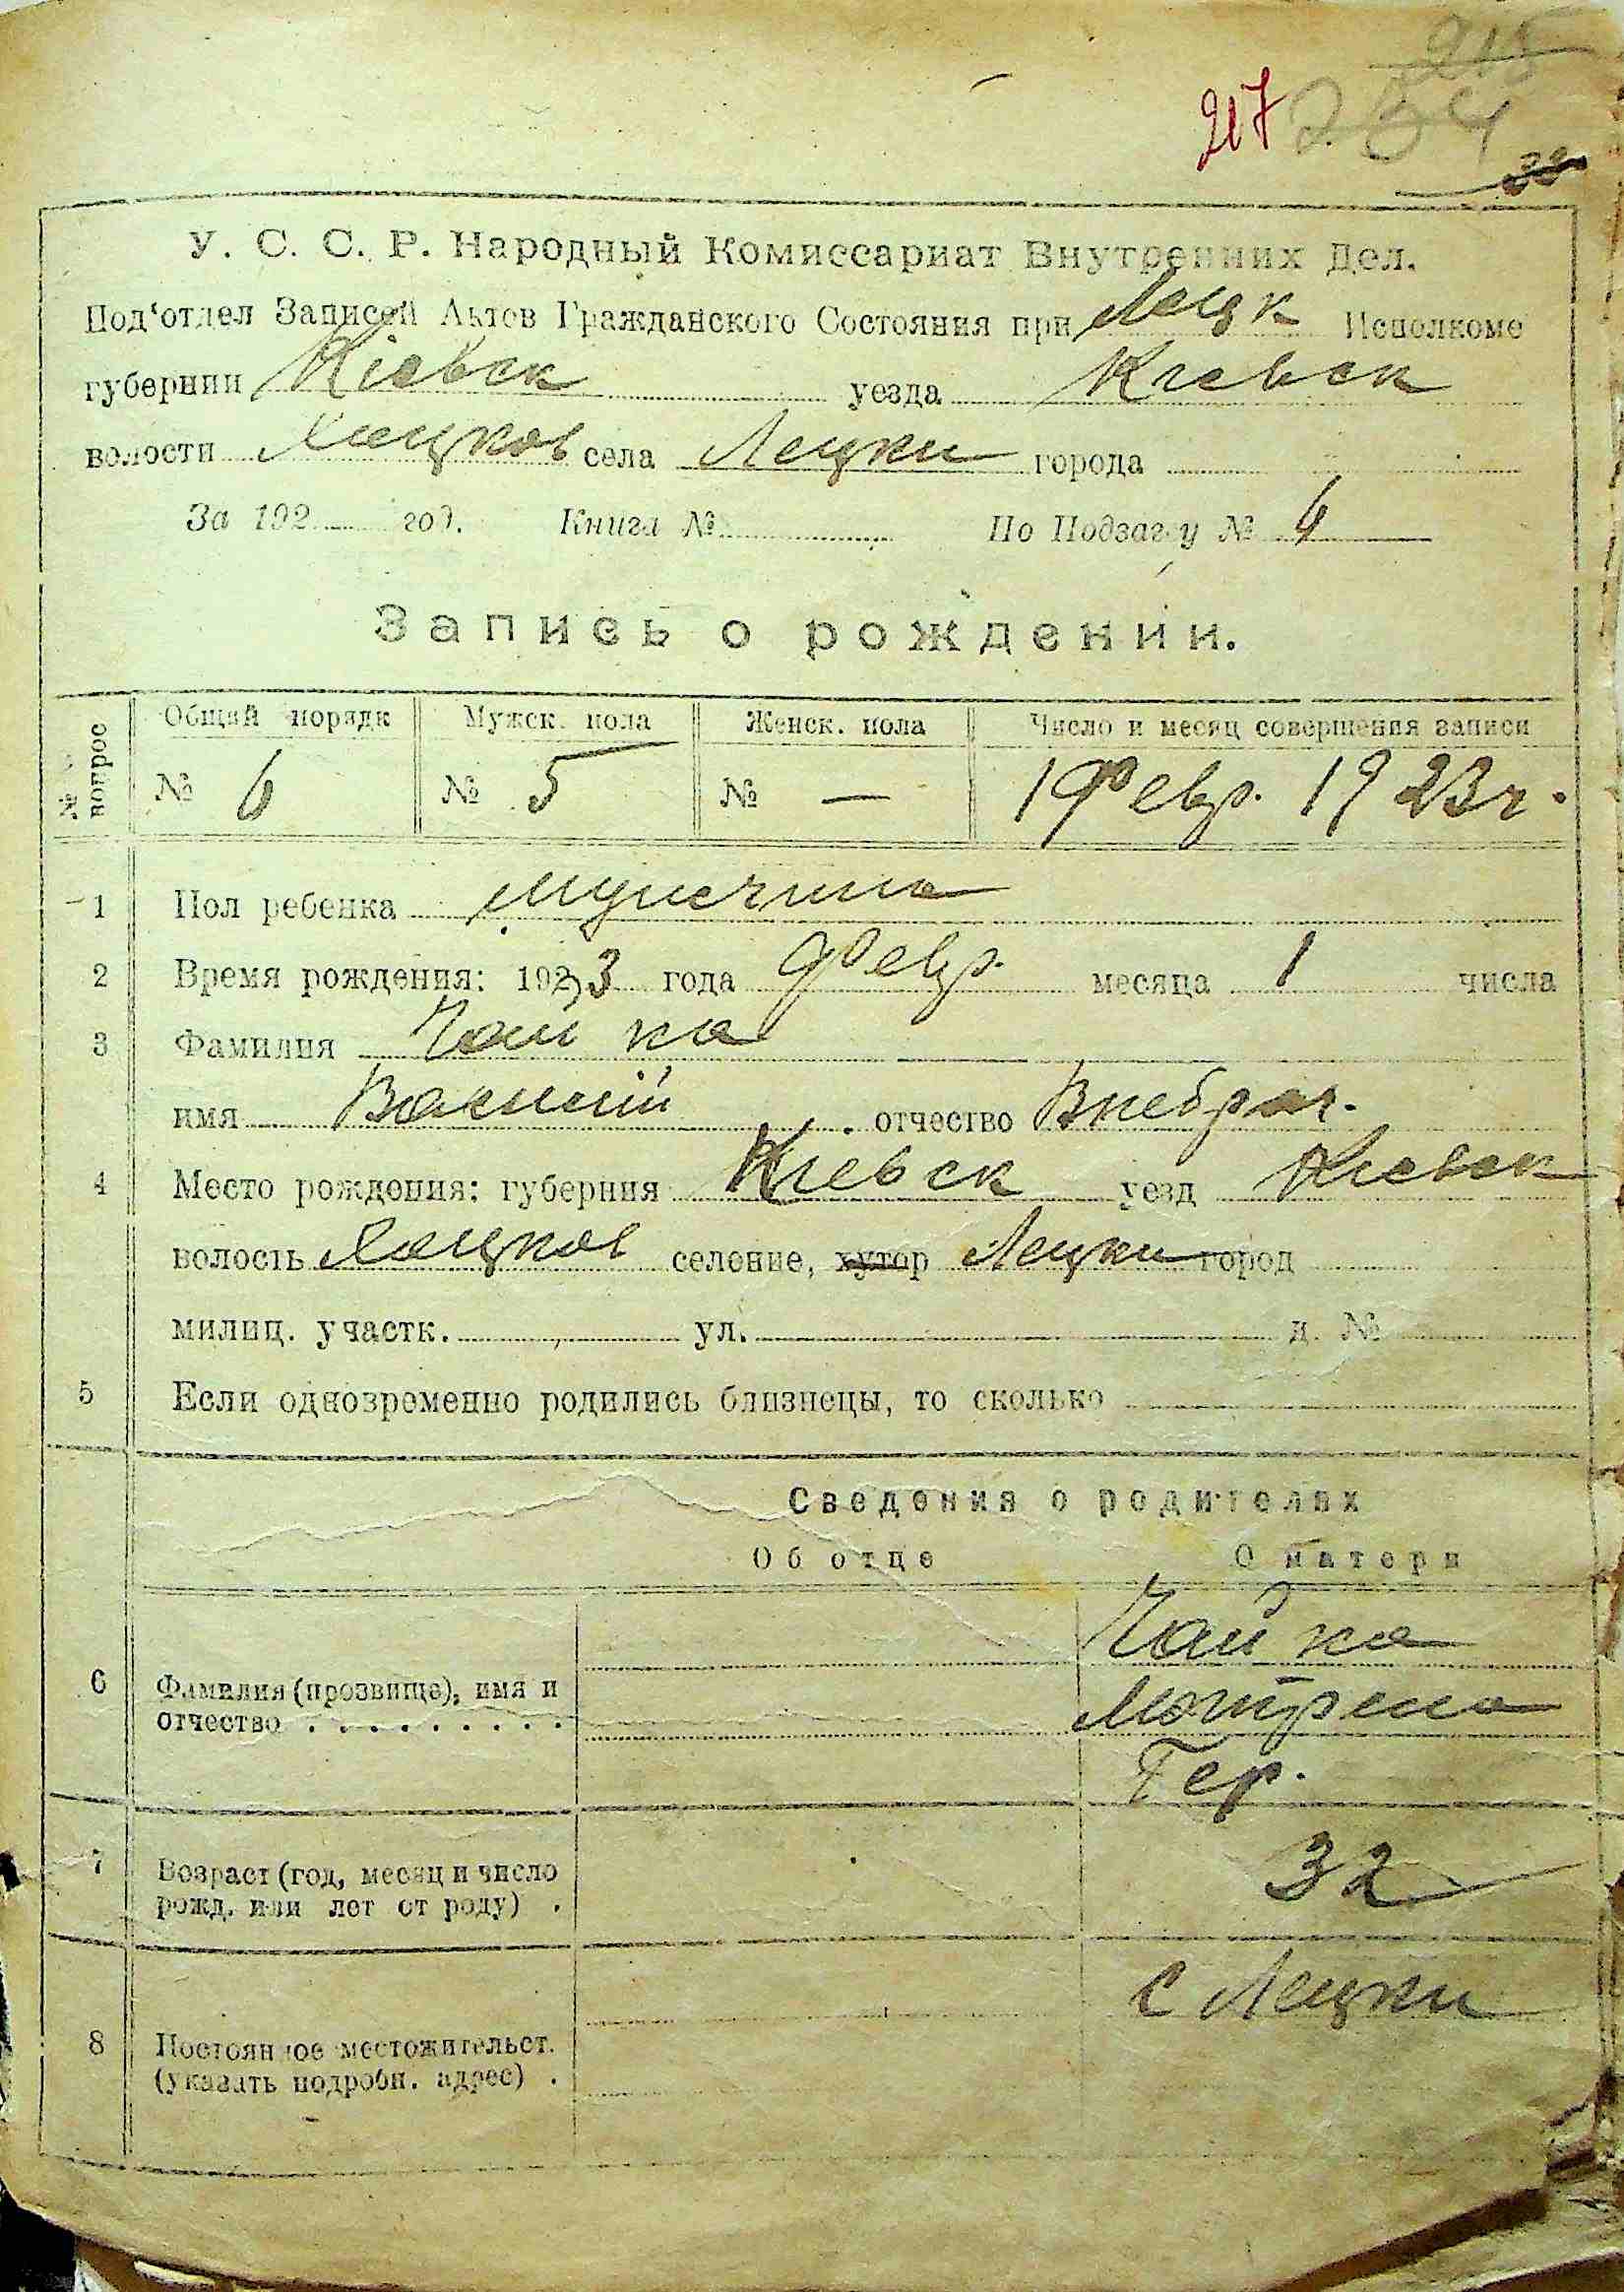 215
217 234
33
У. С. С. Р. Народный Комиссариат Внутренних Дел.
Под‘отдел Записей Актов Гражданского Состояния при Лецк Исполкоме
губернии Кіевск уезда Киевск
волости Хоцков села Лецки города
За 192 год. Книга № По Подзаг у № 4
Запись о рождении.
№ вопрос Общий порядк Мужск. пола Женск. пола Число и месяц совершения записи
№ 6 № 5 № — 1 Февр. 1923 г.
1 Пол ребенка мужчина
2 Время рождения: 1923 года Февр. месяца 1 числа
3 Фамилия Чайка
имя Василий отчество Внебрач.
4 Место рождения: губерния Киевск уезд Киевск
волость Хоцков селение, хутор Лецки город
милиц. участк. ул. д. №
5 Если одновременно родились близнецы, то сколько
Сведения о родителях
Об отце О матери
Чайка
6 Фамилия (прозвище), имя и Мотрена
отчество Гер.
7 Возраст (год, месяц и число 32
рожд. или лет от роду)
с Лецки
8 Постоянное местожительст.
(указать подробн. адрес)